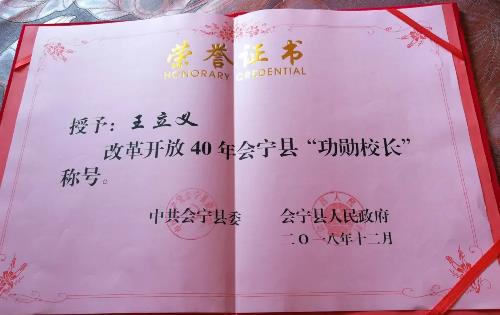 荣誉证书
HONORARY CREDENTIAL
授予：王立义
改革开放40年会宁县“功勋校长”
称号。
中共会宁县委 会宁县人民政府
二〇一八年十二月